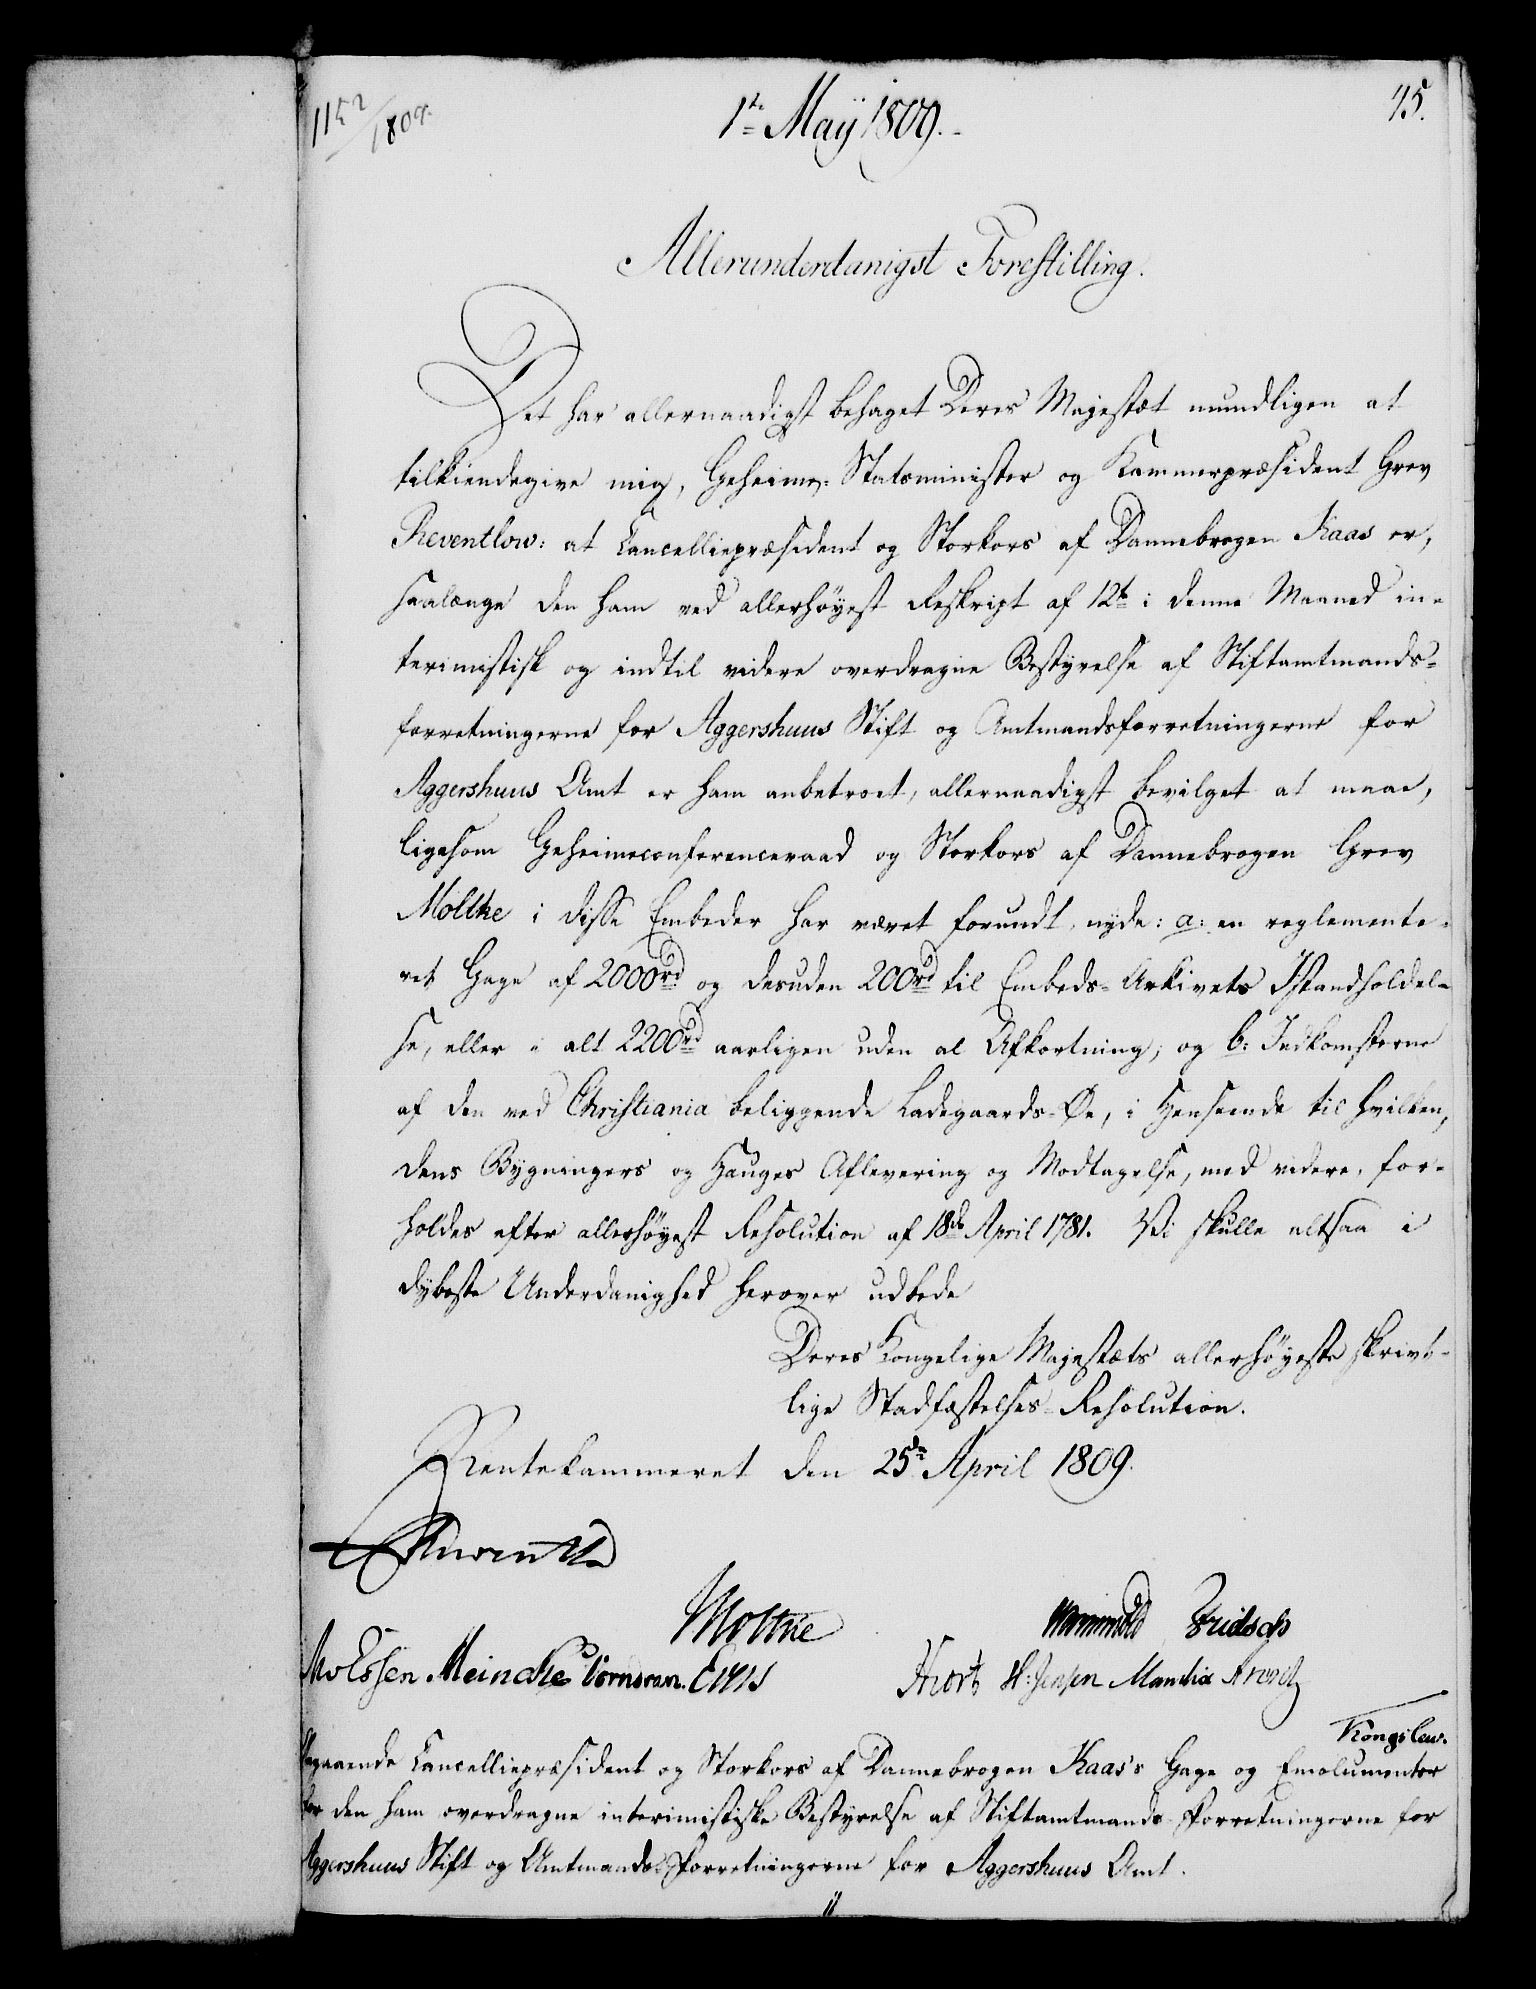 1152/1809.
1te May 1809.
45.
Allerunderdanigst Forestilling.
Det har allernaadigst behaget Deres Majestæt mundligen at
tilkiendegive mig, Geheime-Statsminister og Kammerpræsident Grev
Reventlow: at Cancelliepræsident og Storkors af Dannebrogen Kaas er,
saalænge den ham ved allerhøyest Reskript af 12te i denne Maaned in-
terimistisk og indtil videre overdragne Bestyrelse af Stiftamtmands-
forretningerne for Aggershuus Stift og Amtmandsforretningerne for
Aggershuus Amt er ham anbetroet, allernaadigst bevilget at maae,
ligesom Geheimeconferenceraad og Storkors af Dannebrogen Grev
Moltke i disse Embeder har været forundt, nyde: a: en reglemente-
ret Gage af 2000rd og desuden 200rd til Embeds-Arkivets Istandholdel-
se, eller i alt 2200rd aarligen uden al Afkortning; og b: Indkomsterne
af den ved Christiania beliggende Ladegaards-Øe, i Henseende til hvilken,
dens Bygningers og Hauges Aflevering og Modtagelse, med videre, for-
holdes efter allerhøyest Resolution af 18de April 1781. Vi skulle altsaa i
dybeste Underdanighed herover udbede
Deres Kongelige Majestæts allerhøyeste skrivt-
lige Stadfæstelses-Resolution.
Rentekammeret den 25de April 1809.
Reventlow
Moltke
Meincke Cornoran.
Hiort H: Jensen Manthix
Kongslew.
Cancelliepræsident og Storkors af Dannebrogen Kaas's Gage og Emolumenter
for den ham overdragne interimistiske Bestyrelse af Stiftamtmands-Forretningerne for
Aggershuus Stift og Amtmands-Forretningerne for Aggershuus Amt.